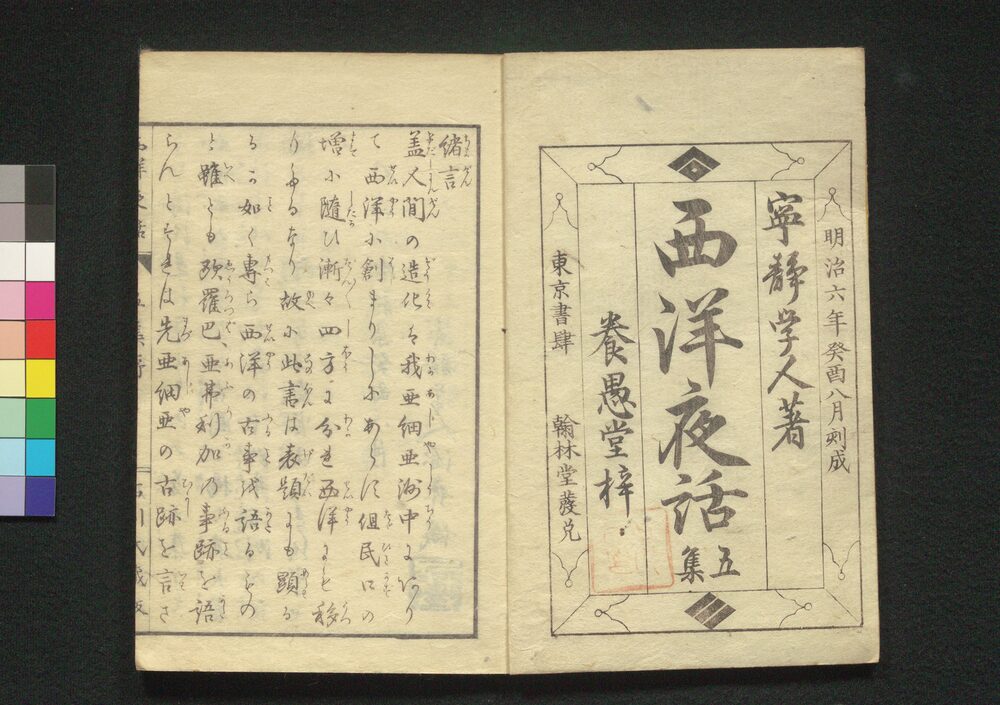 明治六年癸酉八月刻成
寧静学人著
西洋夜話
五集
養愚堂梓
東京書肆
翰林堂發兌
緒言
盖人間の造化は我亜細亜洲中にありて
西洋に創まりしにあらず但民口の
増に隨ひ漸々四方に分れ西洋にも移
りたるなり故に此書は表題にも顕る
るが如く専ら西洋の古事を語るもの
と雖とも欧羅巴亜弗利加の事跡を語
らんとするには先亜細亜の古跡を言さ